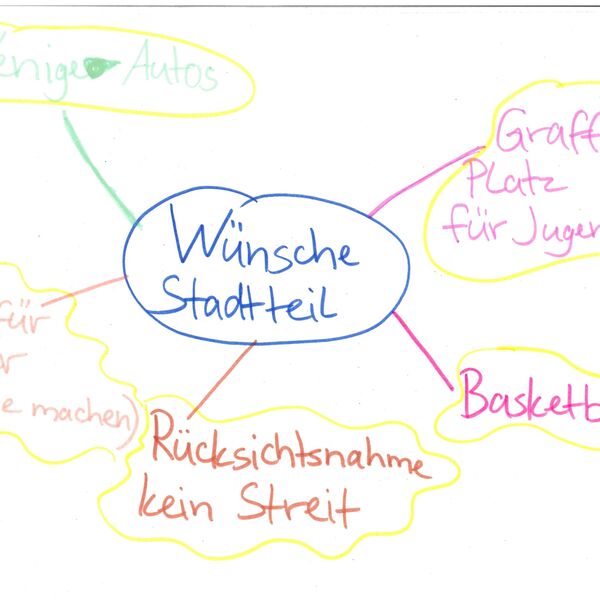 Autos
Graff
Platz
für Jugen
Wünsche
Stadtteil
für
e machen)
Basketb
Rücksichtsnahme
kein Streit